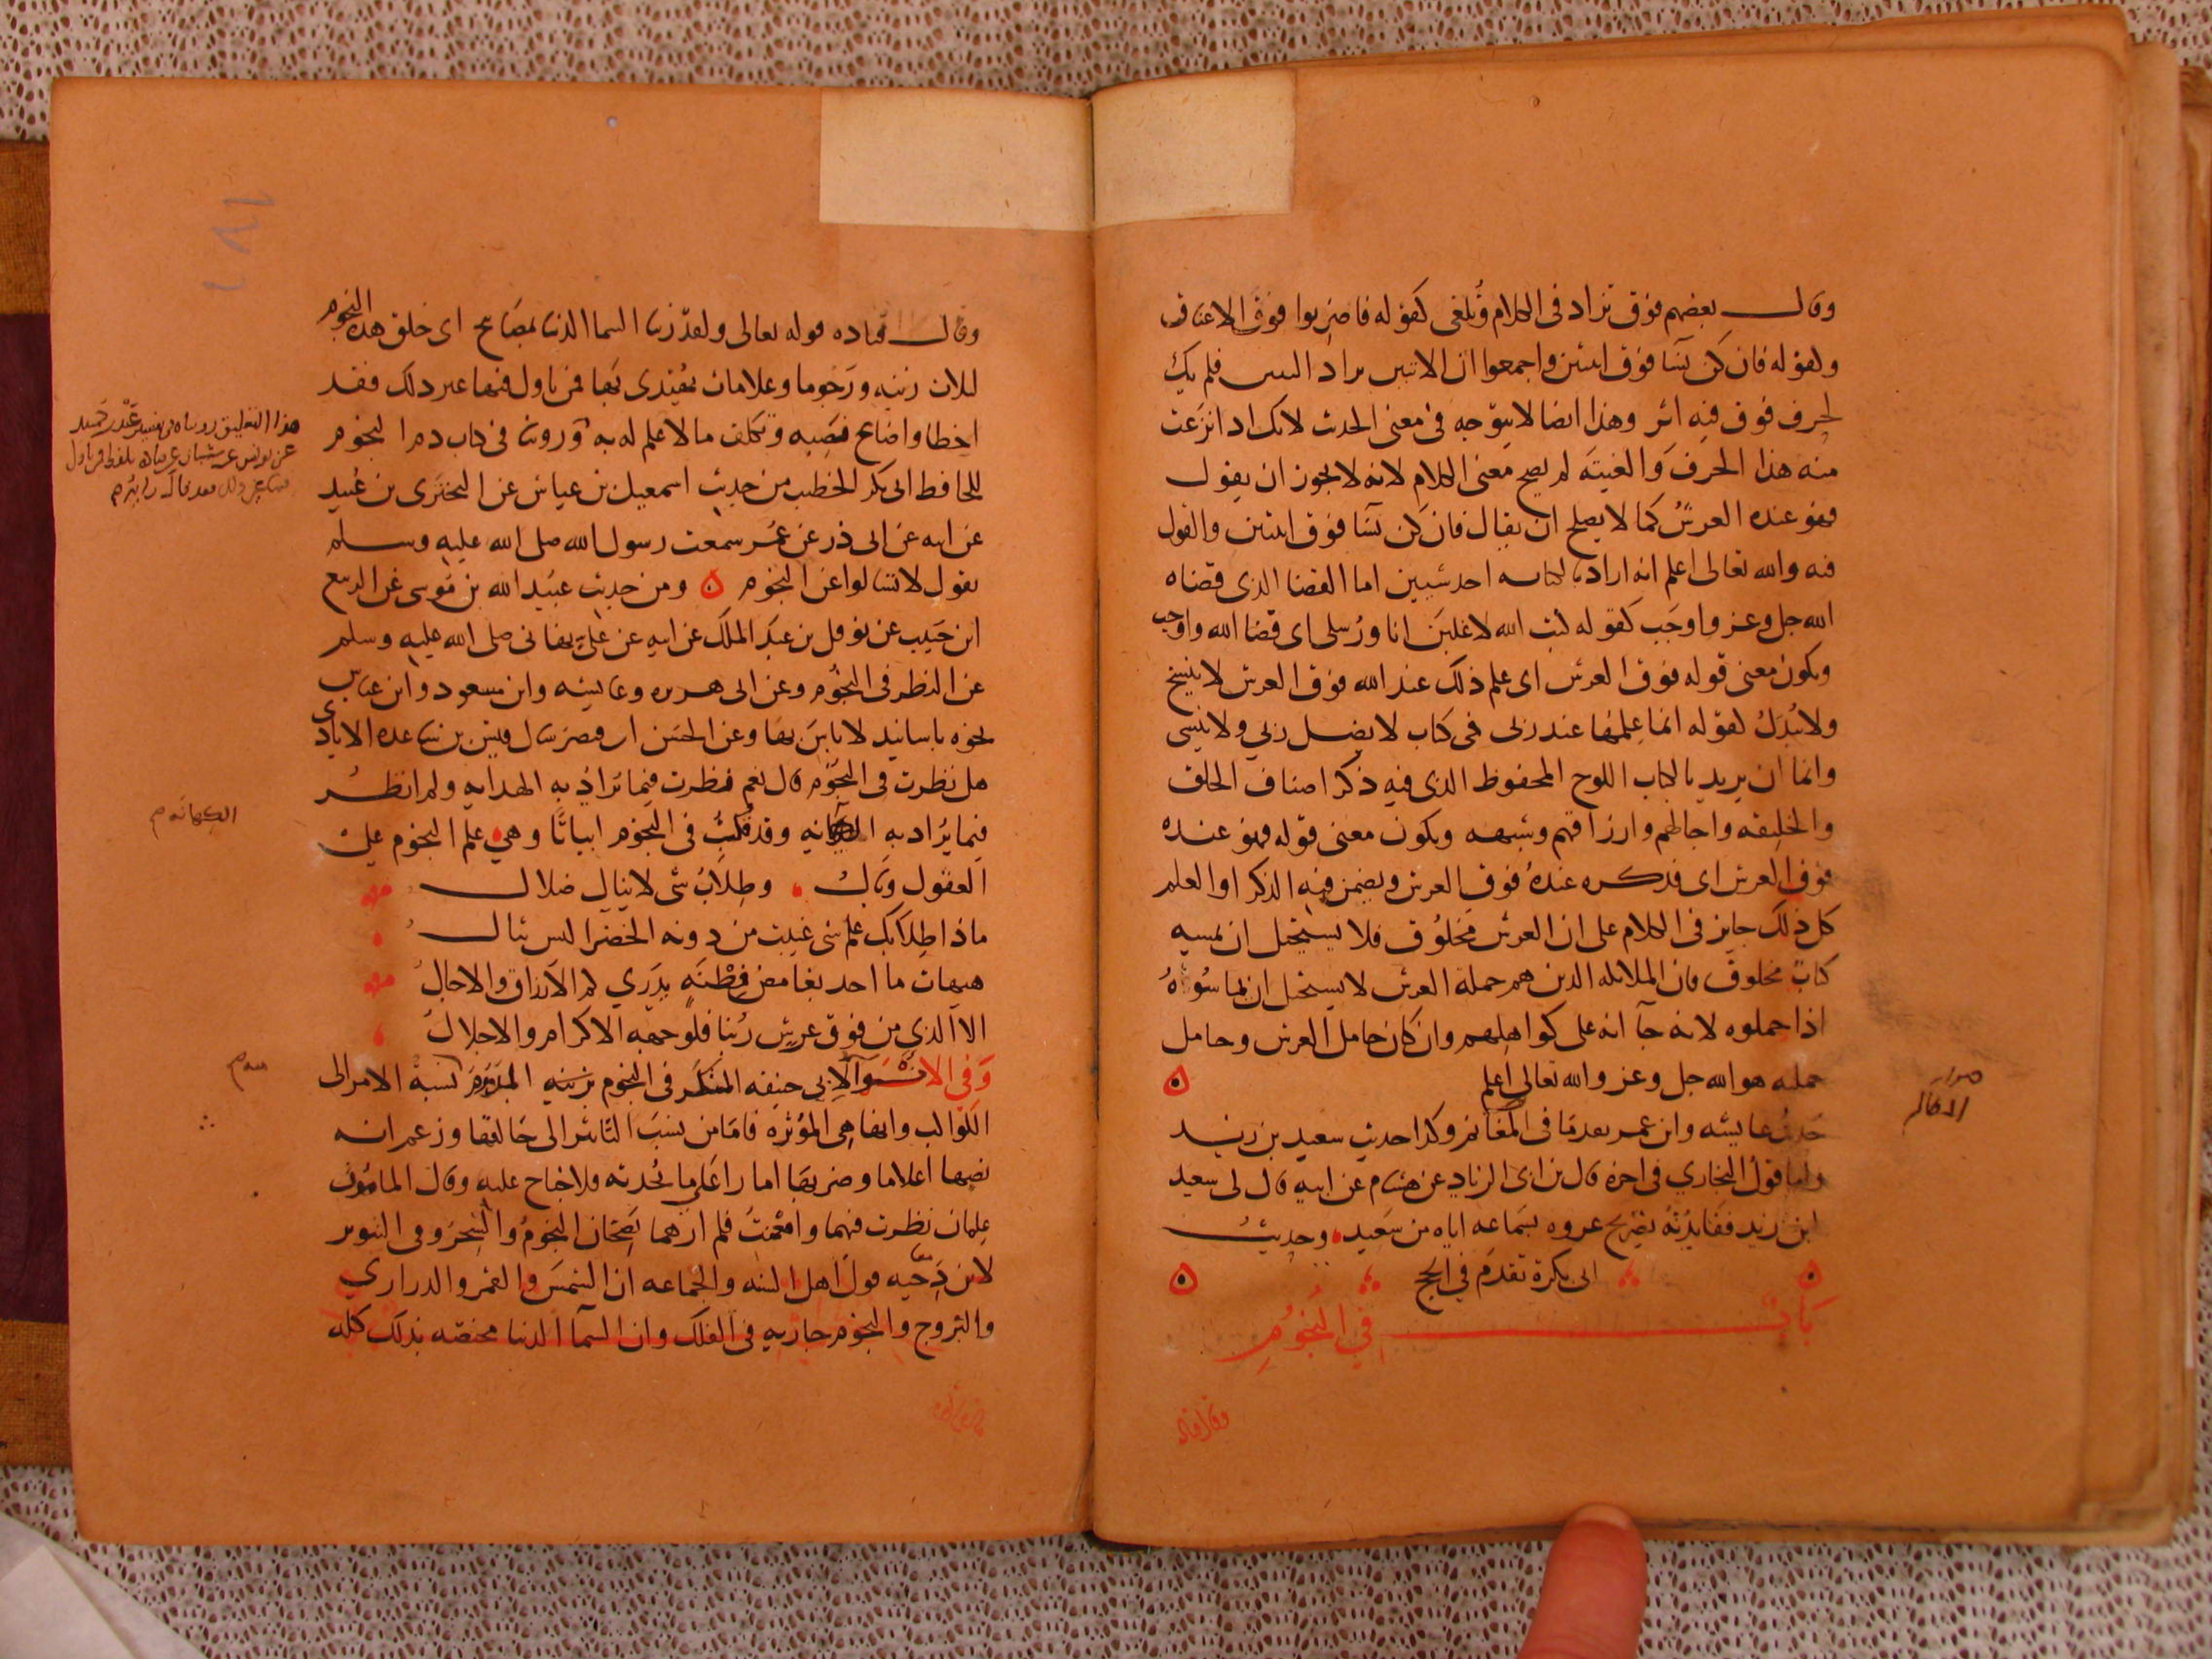 وقال بعضهم فوق تزاد في الكلام وتلغى كقوله فاضربوا فوق الاعناق
ولقوله فان كن نسا فوق اثنتين واجمعوا ان الاثنين يراد فلم يك
لحرف فوق فيه اثر وهذا ايضا لا يتوجه في معنى الحديث لانك اذا نزعت
منه هذا الحرف والغيته لم يصح معنى الكلام لانه لا يجوز ان يقول
فهو عنده العرش كما لا يصلح ان يقال فان كن نسا فوق اثنتين والقول
فيه والله تعالى اعلم انه اراد بالكتاب احد شيين اما القضا الذي قضاه
الله جل وعز واوجب كقوله كتب الله لاغلبن انا ورسلي اي قضا الله واوجب
ويكون معنى قوله فوق العرش اي علم ذلك عند الله فوق العرش لا ينسخ
ولا يبدل لقوله انما علمها عند ربي في كتاب لا يضل ربي ولا ينسى
واما ان يريد بالكتاب اللوح المحفوظ الذي فيه ذكر اصناف الخلق
والخليقه واجالهم وارزاقهم وشبهه ويكون معنى قوله فهو عنده
فوق العرش اي فذكره عنده فوق العرش ويضمن فيه الذكر او العلم
كل ذلك جايز في الكلام على ان العرش مخلوق فلا يستحيل ان يمسه
كتاب مخلوق فان الملايكه الذين هم حملة العرش لا يستحيل ان يماسوه
اذا حملوه لانه جا انه على كواهلهم وان كان حامل العرش وحامل
حملته هو الله جل وعز والله تعالى اعلم
حديث عايشه وابن عمر تقدما في المغازي وكذا حديث سعيد بن زيد
واما قول البخاري في اخره قال بن ابي الزناد عن هشام عن ابيه قال لي سعيد
ابن زيد ففايدته تصريح عروه بسماعه اياه من سعيد وحديث
ابي بكرة تقدم في الحج
باب في النجوم
وقال قتاده
وقال قتاده قوله تعالى ولقد زينا السما الدنيا بمصابيح اي خلق هذه النجوم
لثلاث زينه ورجوما وعلامات يهتدى بها فمن تاول فيها غير ذلك فقد
اخطا واضاع نصيبه وتكلف ما لا علم له به وروينا في كتاب ذم النجوم
للحافظ ابي بكر الخطيب من حديث اسمعيل بن عياش عن البختري بن عبيد
عن ابيه عن ابي ذر عن عمر سمعت رسول الله صلى الله عليه وسلم
يقول لا تسالوا عن النجوم ومن حديث عبيد الله بن موسى عن الربيع
ابن حبيب عن نوفل بن عبد الملك عن ابيه عن علي نهاني صلى الله عليه وسلم
عن النظر في النجوم وعن ابي هريره وعايشه وابن مسعود وابن عباس
نحوه باسانيد لا باس بها وعن الحسن ان قيصر سال قس بن ساعده الايادي
هل نظرت في النجوم قال نعم نظرت فيما يراد به الهدايه ولم انظر
فيما يراد به الكهانه وقد قلت في النجوم ابياتا وهي علم النجوم على
العقول وبال وطلاب شي لا ينال ضلال
ماذا طلابك علم شي غيبت من دونه الخضرا ليس ينال
هيهات ما احد بغامض فطنة يدري كم الارزاق والاجال
الا الذي من فوق عرش ربنا فلوجهه الاكرام والاجلال
وفي الانوا لابي حنيفه المنكر في النجوم نسبة الامر الى
الكواكب وانها هي المؤثره فاما من نسب التاثير الى خالقها وزعم انه
نصبها اعلاما وضربها اثارا على ما يحدثه فلا جناح عليه وقال المامون
علمان نظرت فيهما وامعنت فلم ارهما يصحان النجوم والسحر وفي التنوير
لابن دحيه قول اهل السنه والجماعه ان الشمس والقمر والدراري
والبروج والنجوم جاريه في الفلك وان السما الدنيا مختصه بذلك كله
هذا التعليق رويناه في تفسير عبد بن حميد
عن يونس عن شيبان عن قتاده بلفظ فمن تاول
الكهانه م